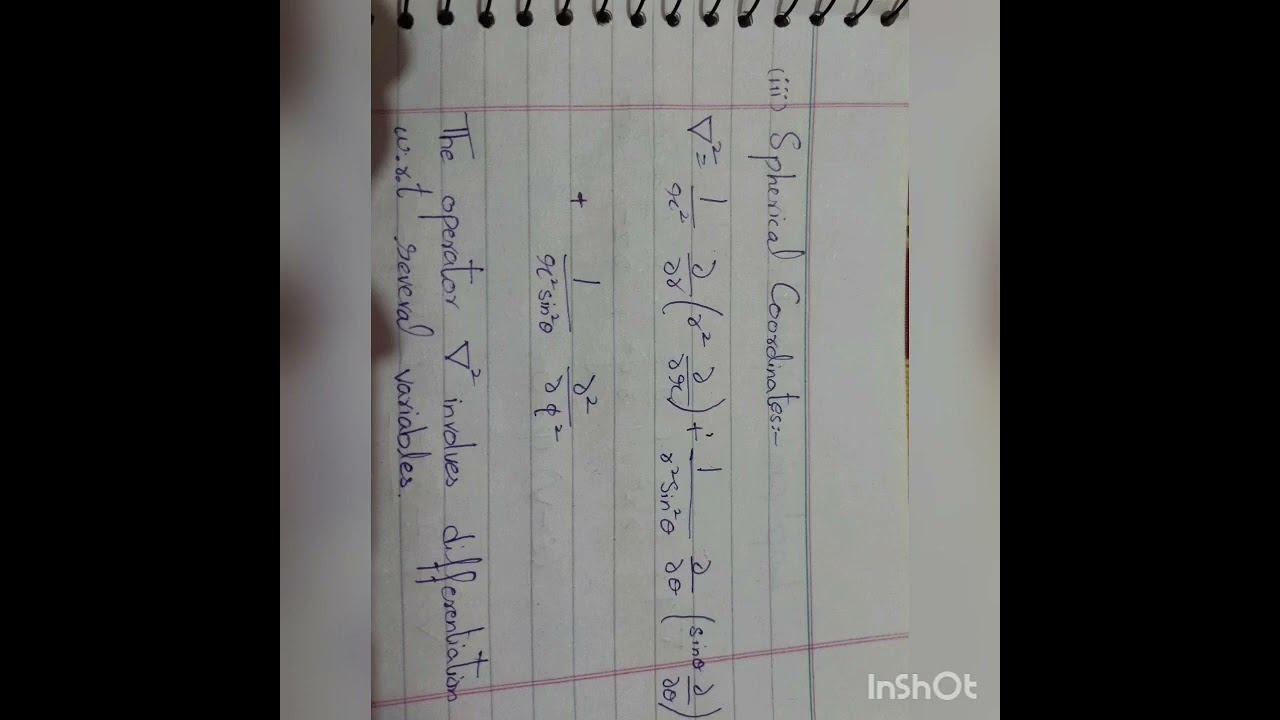 (iii) Spherical Coordinates:-
∇² = 1/r² ∂/∂r (r² ∂/∂r) + 1/r²sin²θ ∂/∂θ (sinθ ∂/∂θ)
+ 1/r²sin²θ ∂²/∂φ²
The operator ∇² involves differentiation
w.r.t several variables.
InShOt